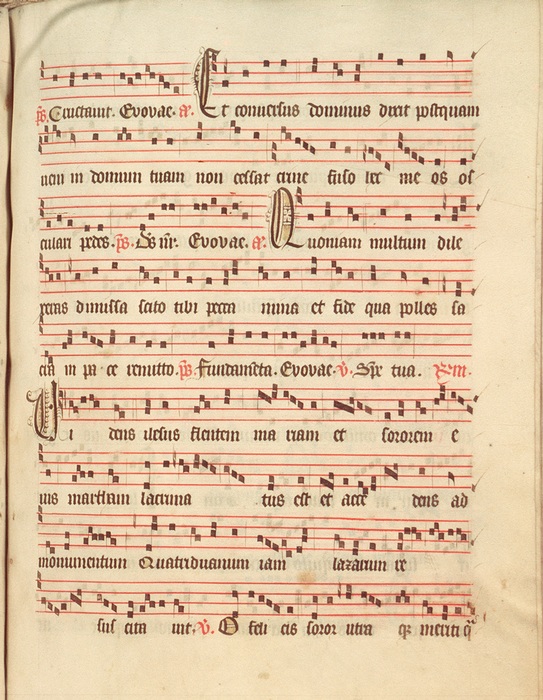 ps. Eructauit. Evovae. a. Et conversus dominus dixit postquam
nem in domum tuam non cessat crine fuso lec me os os
culari pedes. ps. Ds nr. Evovae. a. Quoniam multum dile
xeras dimissa scito tibi pecca mina et fide qua polles sa
in pa ce remitto. ps. Fundamēta. Evovae. v. Spe tua.
Videns ihesus flentem ma riam et sororem e
ius martham lacrima tus est et acce dens ad
monumentum Quatriduanum iam lazarum re
sus cita uit. v. O feli cis soror utra meriti